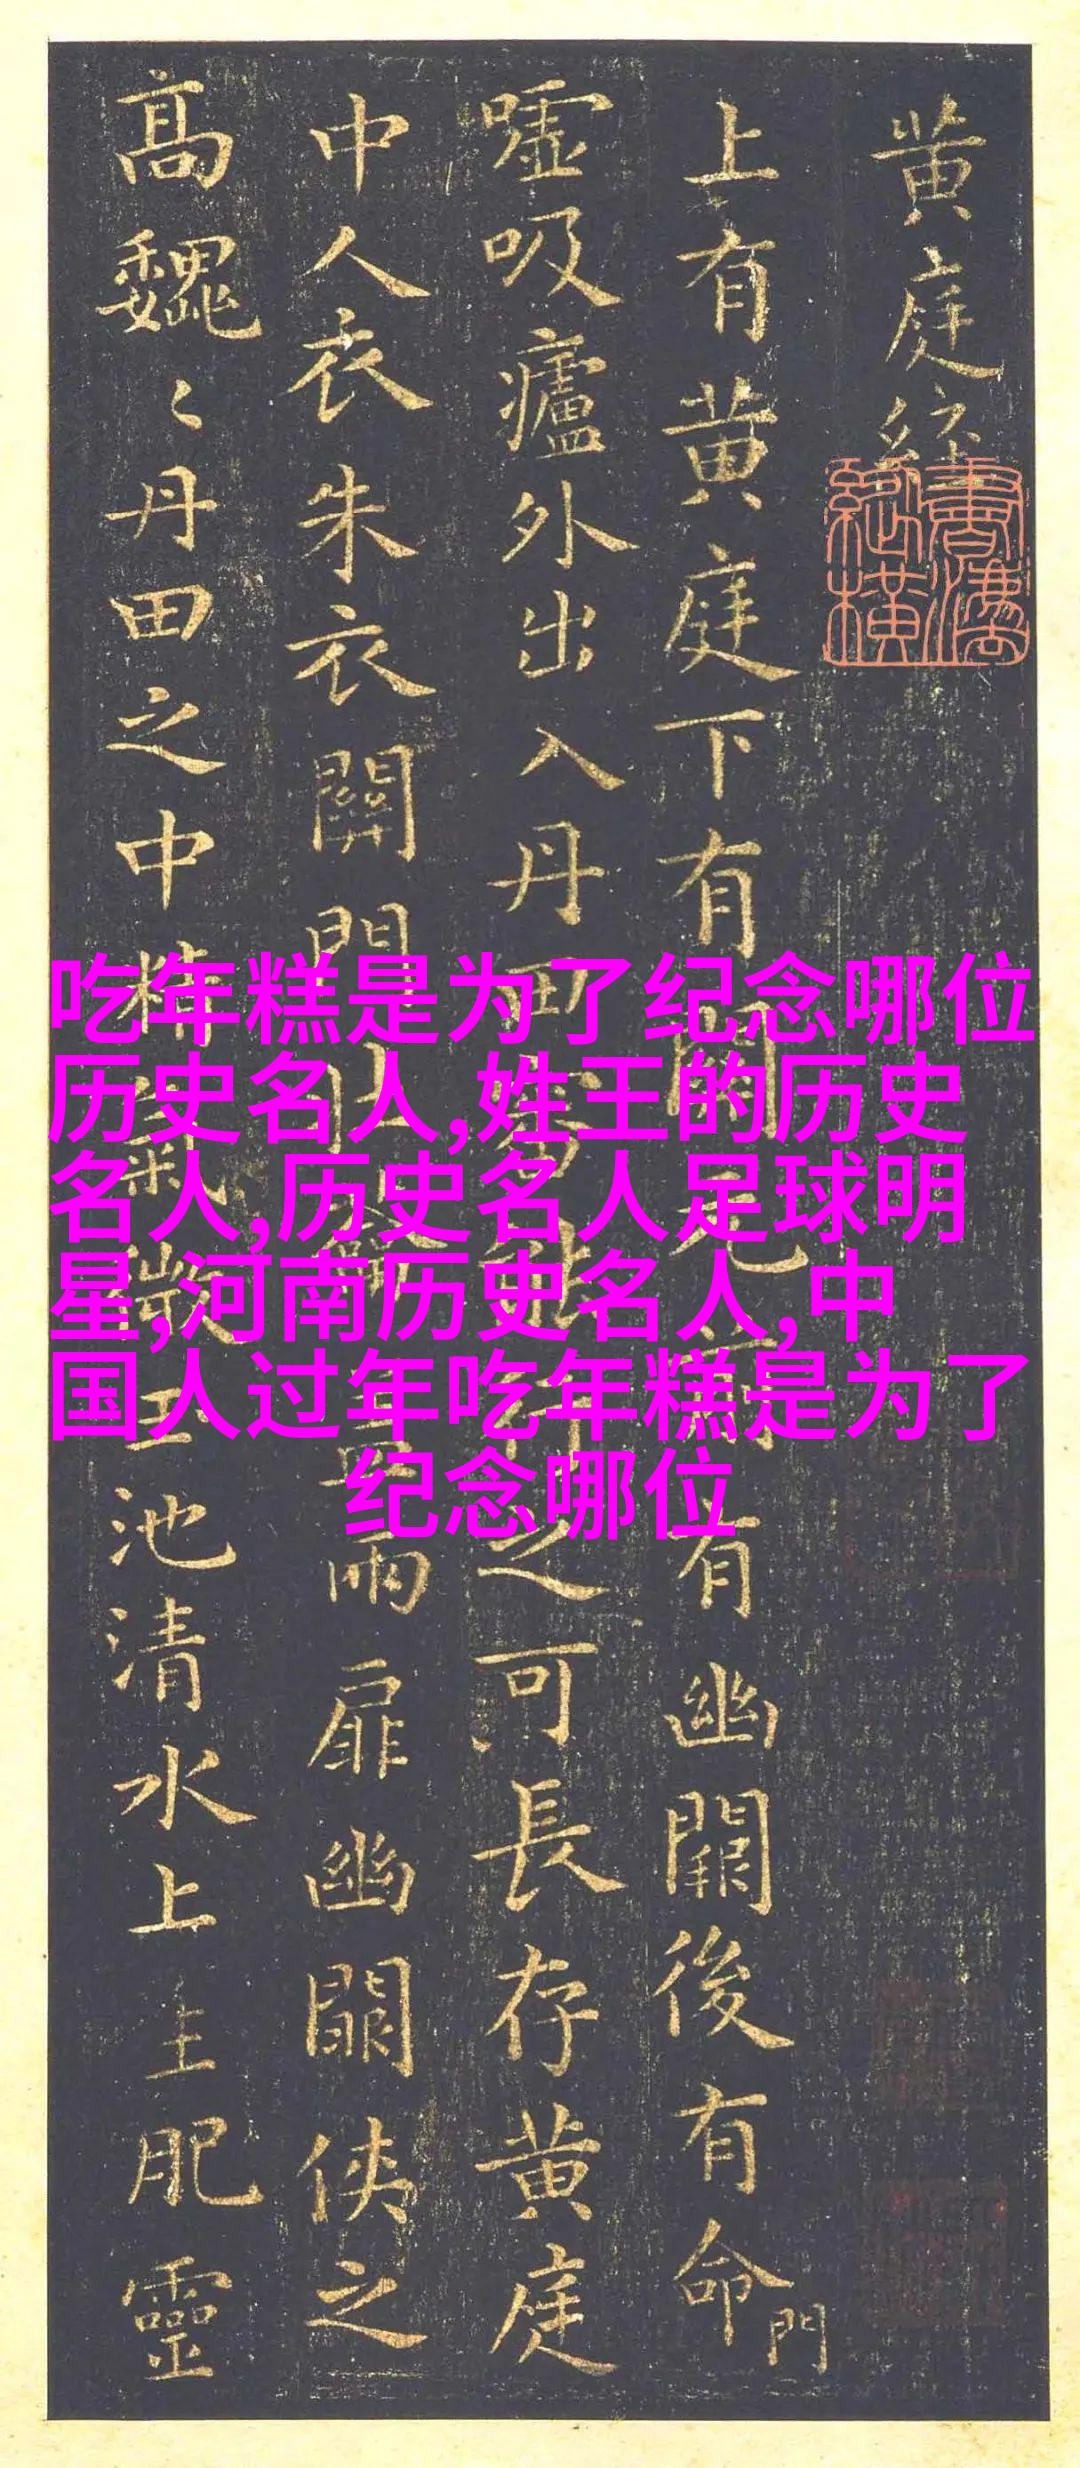 黄庭經
上有黄庭下有關元前有幽闕後有命門
噓吸廬外出入丹田審能行之可長存黄庭
中人衣朱衣關門壯籥蓋兩扉幽闕俠之
高巍〻丹田之中精氣微玉池清水上生肥靈
吃年糕是为了纪念哪位
历史名人,姓王的历史
名人,历史名人足球明
星,河南历史名人,中
国人过年吃年糕是为了
纪念哪位